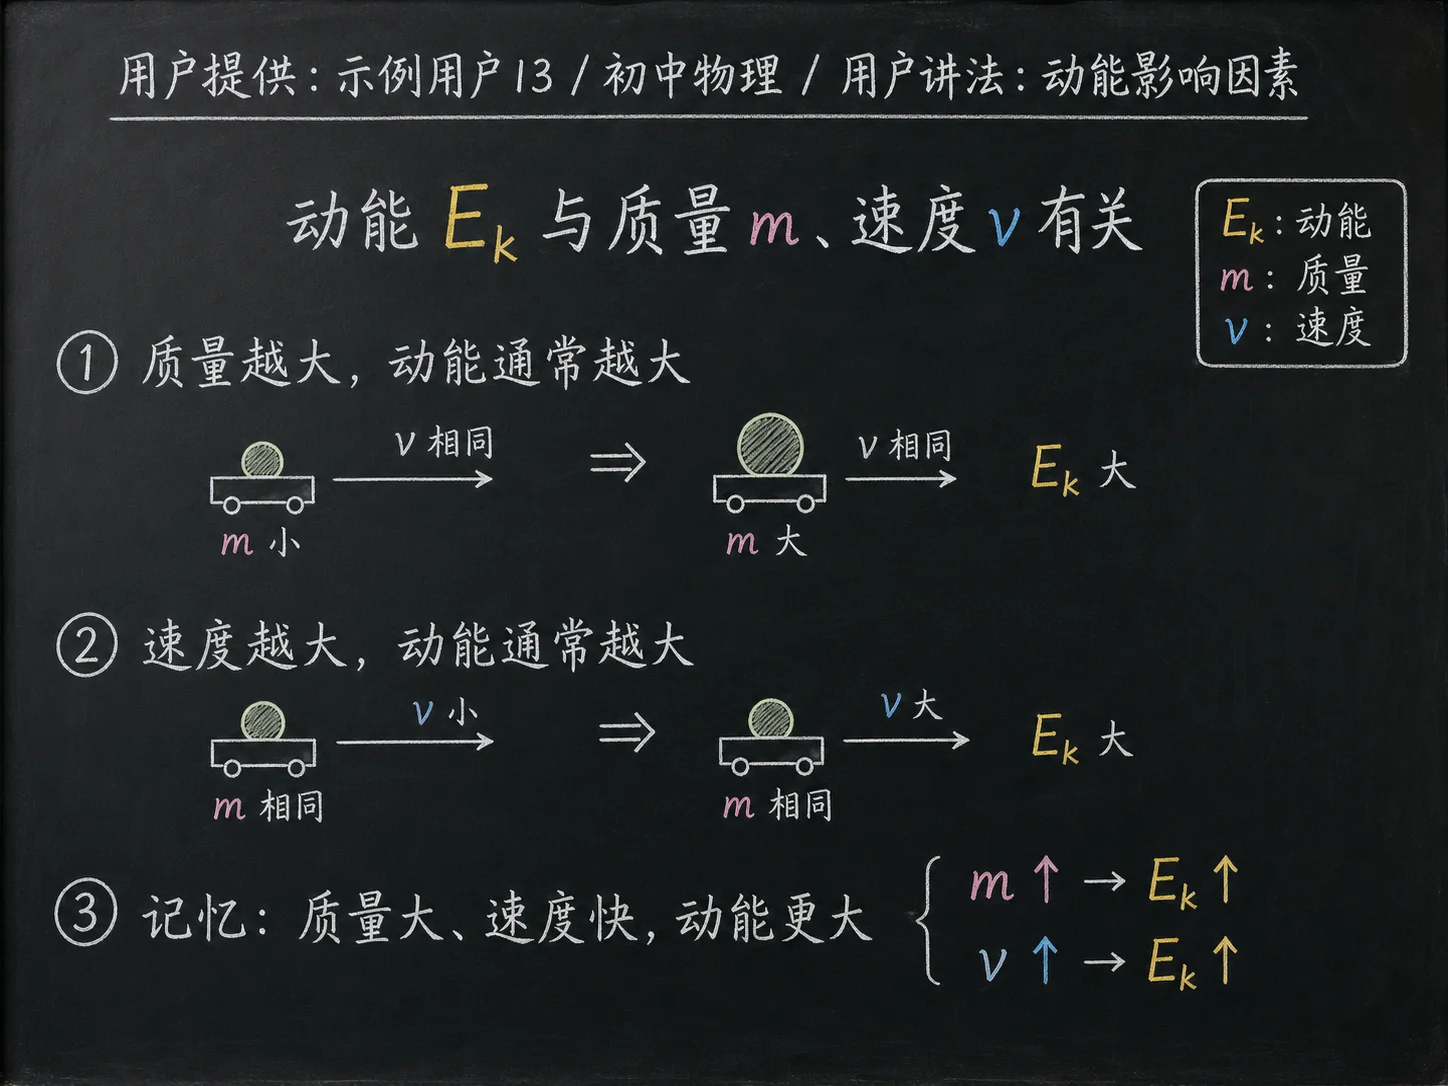 用户提供：示例用户13 / 初中物理 / 用户讲法：动能影响因素
动能 Eₖ 与质量 m、速度 v 有关
Eₖ：动能
m：质量
v：速度
① 质量越大，动能通常越大
v 相同 ⇒ v 相同 Eₖ 大
m 小 m 大
② 速度越大，动能通常越大
v 小 ⇒ v 大 Eₖ 大
m 相同 m 相同
③ 记忆：质量大、速度快，动能更大
m ↑ → Eₖ ↑
v ↑ → Eₖ ↑